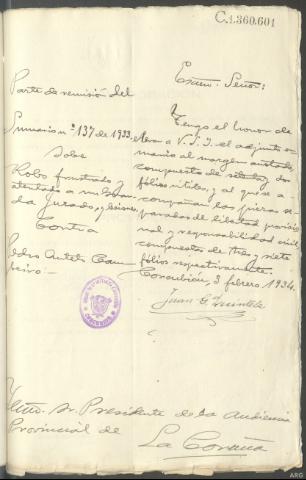 C.1.360.601
Excmo. Señor:
Parte de remisión del
Sumario nº 137 de 1933,
sobre
Robo frustrado y
atentado a un Guar-
da Jurado, y lesiones,
Contra
Pedro Antelo Cam
beiro.
Tengo el honor de
elevar a V. S. I. el adjunto su-
mario al margen anotado,
compuesto de setenta y dos
fólios útiles, y al que a-
compañan las piezas se-
paradas de libertad provisio-
nal y responsabilidad civil
compuestas de tres y siete
fólios respectivamente.
Corcubión, 3 febrero 1934.
Juan G
Iltmo. Sr. Presidente de la Audiencia
Provincial de
La Coruña
ARG